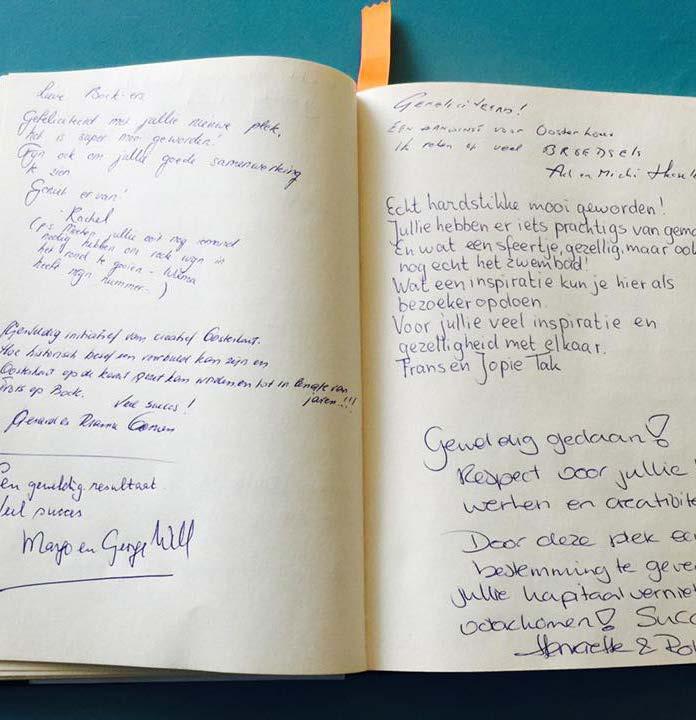 Lieve Bock-ers
Gefeliciteerd met jullie nieuwe plek,
het is super mooi geworden!
Fijn ook om jullie goede samenwerking
te zien
Geniet ervan!
Rachel
(ps mochten jullie ooit nog iemand
nodig hebben om rode wijn in
het rond te gooien -
heeft mijn nummer- )
Geweldig initiatief van creatief Oosterhout.
Hoe historisch besef een voorbeeld kan zijn en
Oosterhout op de kaart gezet kan worden en tot in lengte van
jaren!!!
Trots op Bock.
Veel succes!
Gerard en Rianne
Een geweldig resultaat
Veel succes
Marjo en George Will
Gefeliciteerd!
Een aanwinst voor Oosterhout
Ik reken op veel BROEDSELS
Ad en Michi
Echt hardstikke mooi geworden!
Jullie hebben er iets prachtigs van gema
En wat een sfeertje, gezellig, maar ook
nog echt het zwembad!
Wat een inspiratie kun je hier als
bezoeker opdoen.
Voor jullie veel inspiratie en
gezelligheid met elkaar.
Frans en Jopie Tak
Geweldig gedaan!
Respect voor jullie
werken en creativite
Door deze plek een
bestemming te geve
jullie kapitaalverniet
voorkomen! Succ
Henriette & Ro